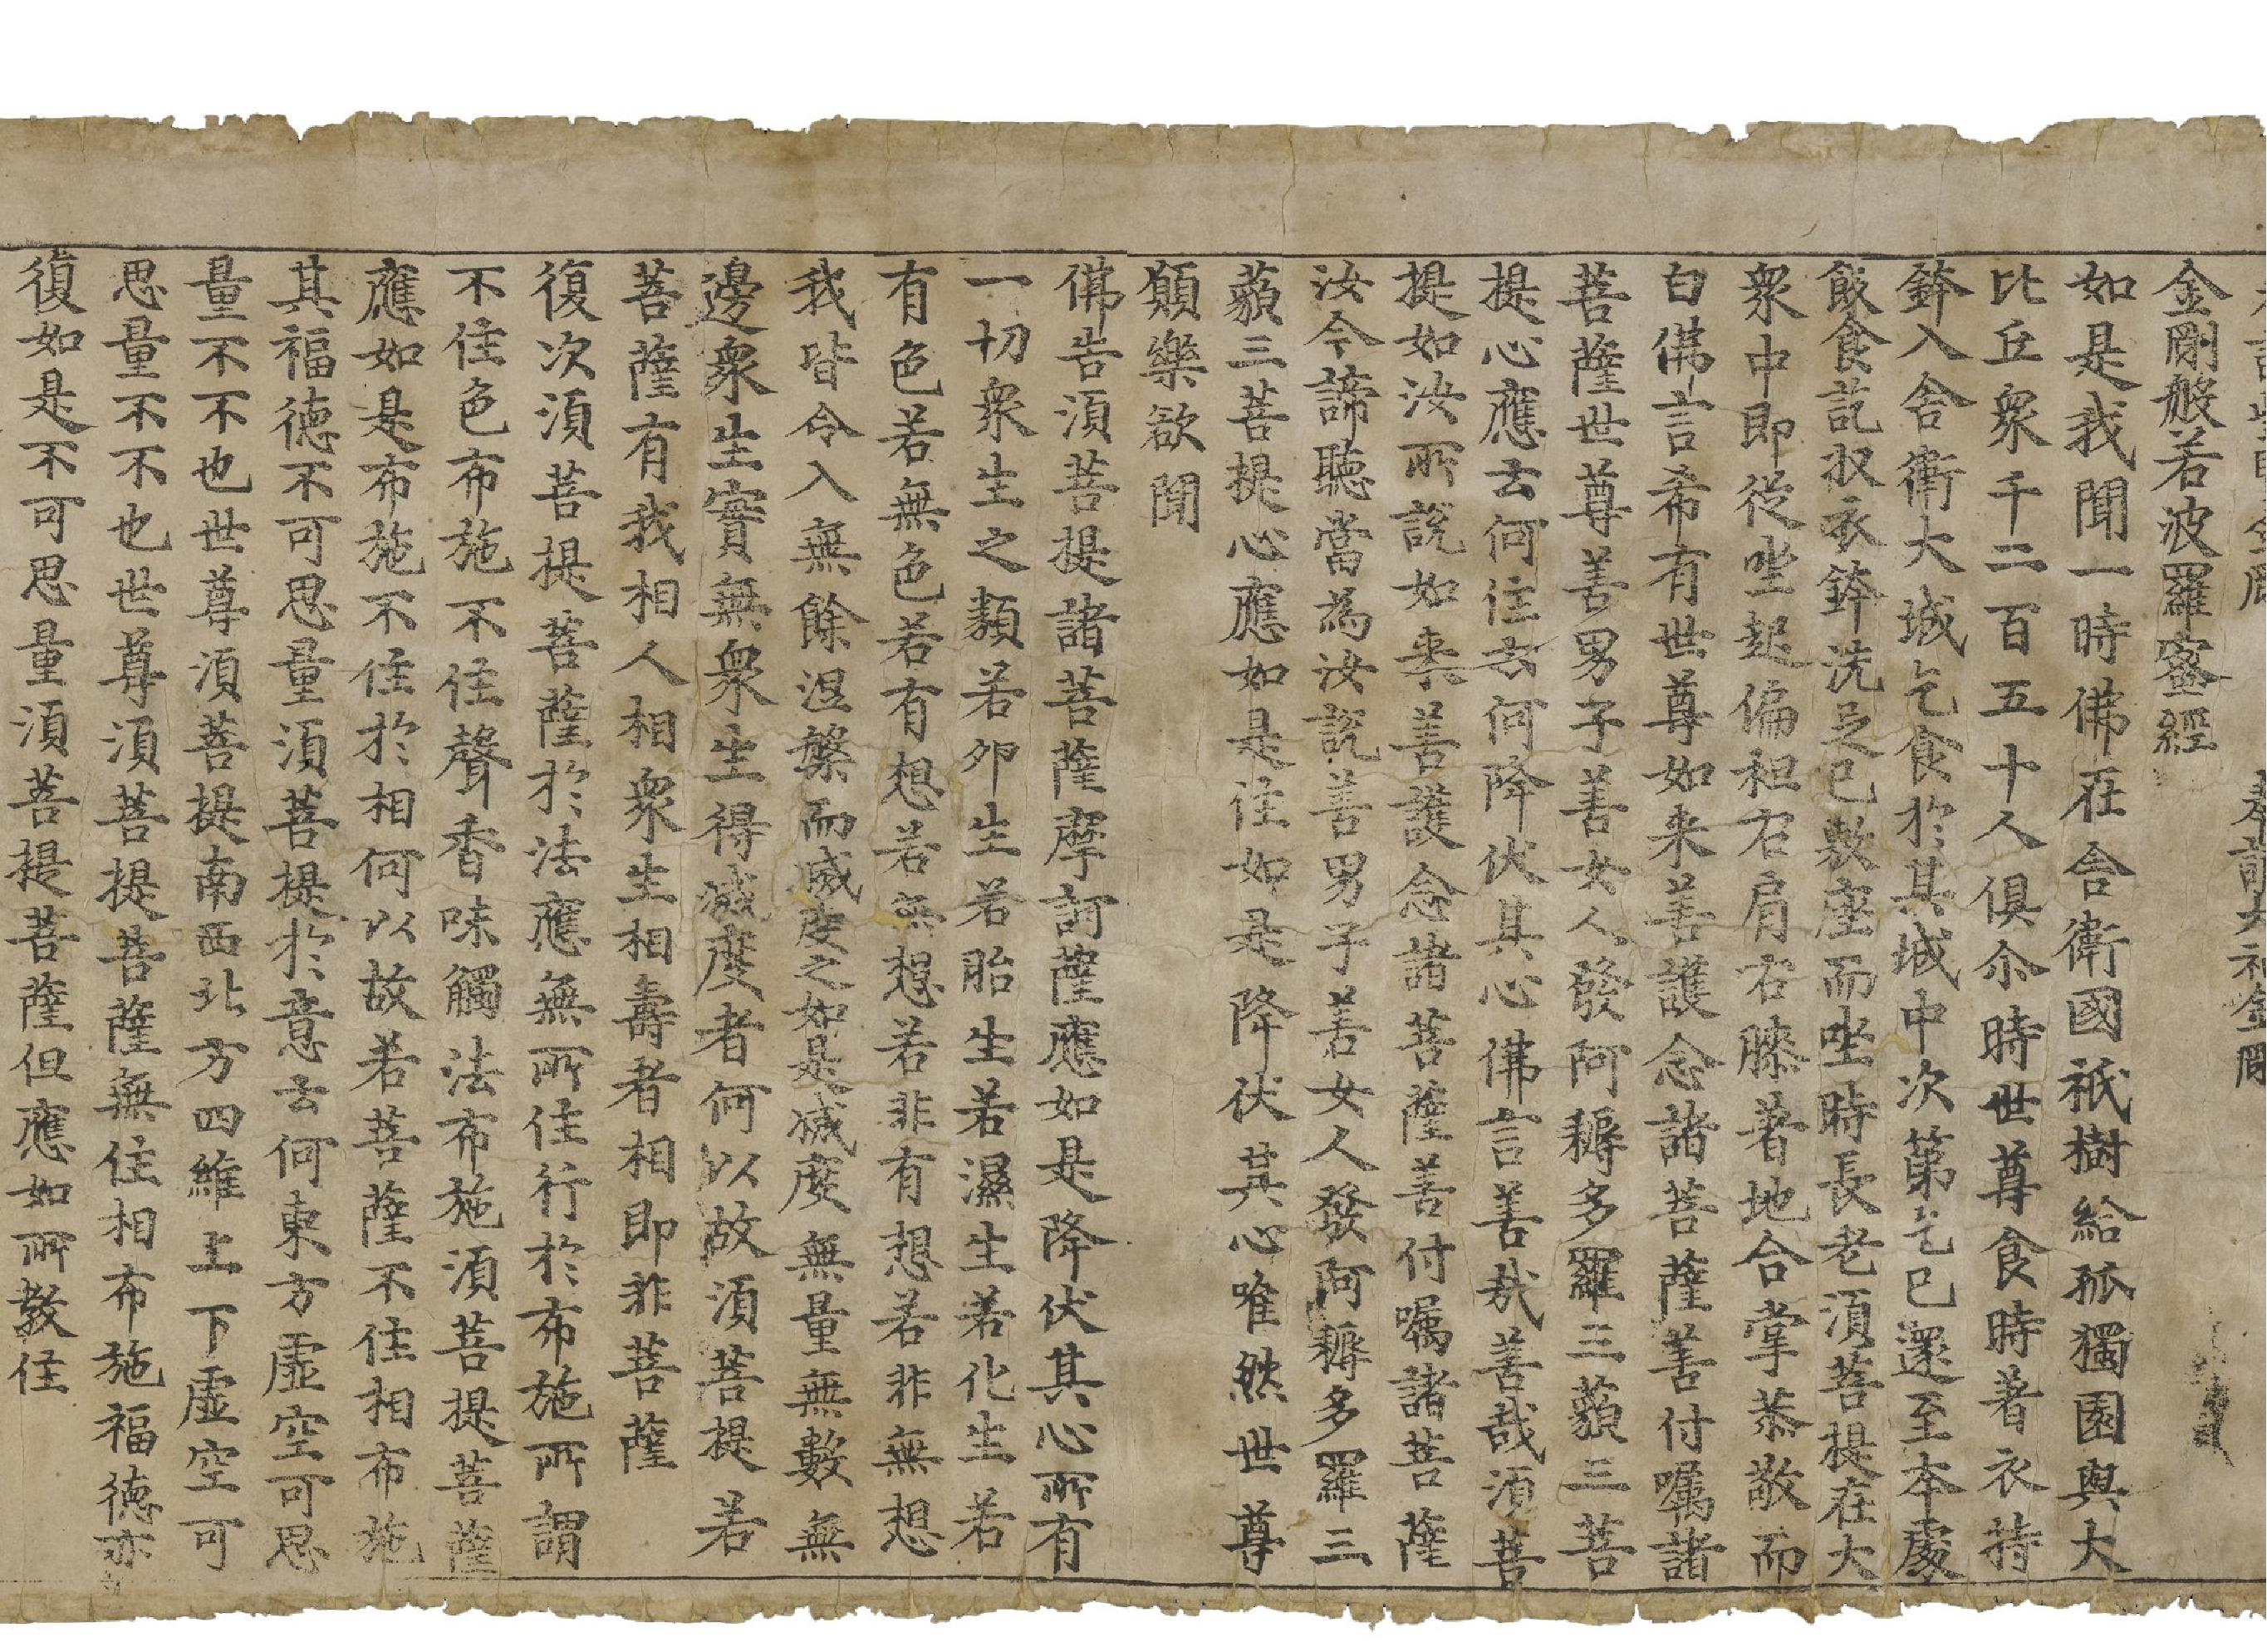 奉請大神金剛
金剛般若波羅蜜經
如是我聞一時佛在舍衛國祇樹給孤獨園與大
比丘衆千二百五十人俱尒時世尊食時著衣持
鉢入舍衛大城乞食於其城中次第乞已還至本處
飯食訖収衣鉢洗足已敷座而坐時長老湏菩提在大
衆中即從坐起偏袒右肩右膝著地合掌恭敬而
白佛言希有世尊如来善護念諸菩薩善付嘱諸
菩薩世尊善男子善女人發阿耨多羅三藐三菩
提心應云何住云何降伏其心佛言善哉善哉湏菩
提如汝所說如来善護念諸菩薩善付嘱諸菩薩
汝今諦聽當為汝說善男子善女人發阿耨多羅三
藐三菩提心應如是住如是降伏其心唯然世尊
願樂欲聞
佛告湏菩提諸菩薩摩訶薩應如是降伏其心所有
一切衆生之類若卵生若胎生若濕生若化生若
有色若無色若有想若無想若非有想若非無想
我皆令入無餘涅槃而滅度之如是滅度無量無數無
邊衆生實無衆生得滅度者何以故湏菩提若
菩薩有我相人相衆生相壽者相即非菩薩
復次湏菩提菩薩於法應無所住行於布施所謂
不住色布施不住聲香味觸法布施湏菩提菩薩
應如是布施不住於相何以故若菩薩不住相布施
其福德不可思量湏菩提於意云何東方虛空可思
量不不也世尊湏菩提南西北方四維上下虛空可
思量不不也世尊湏菩提菩薩無住相布施福德亦
復如是不可思量湏菩提菩薩但應如所教住